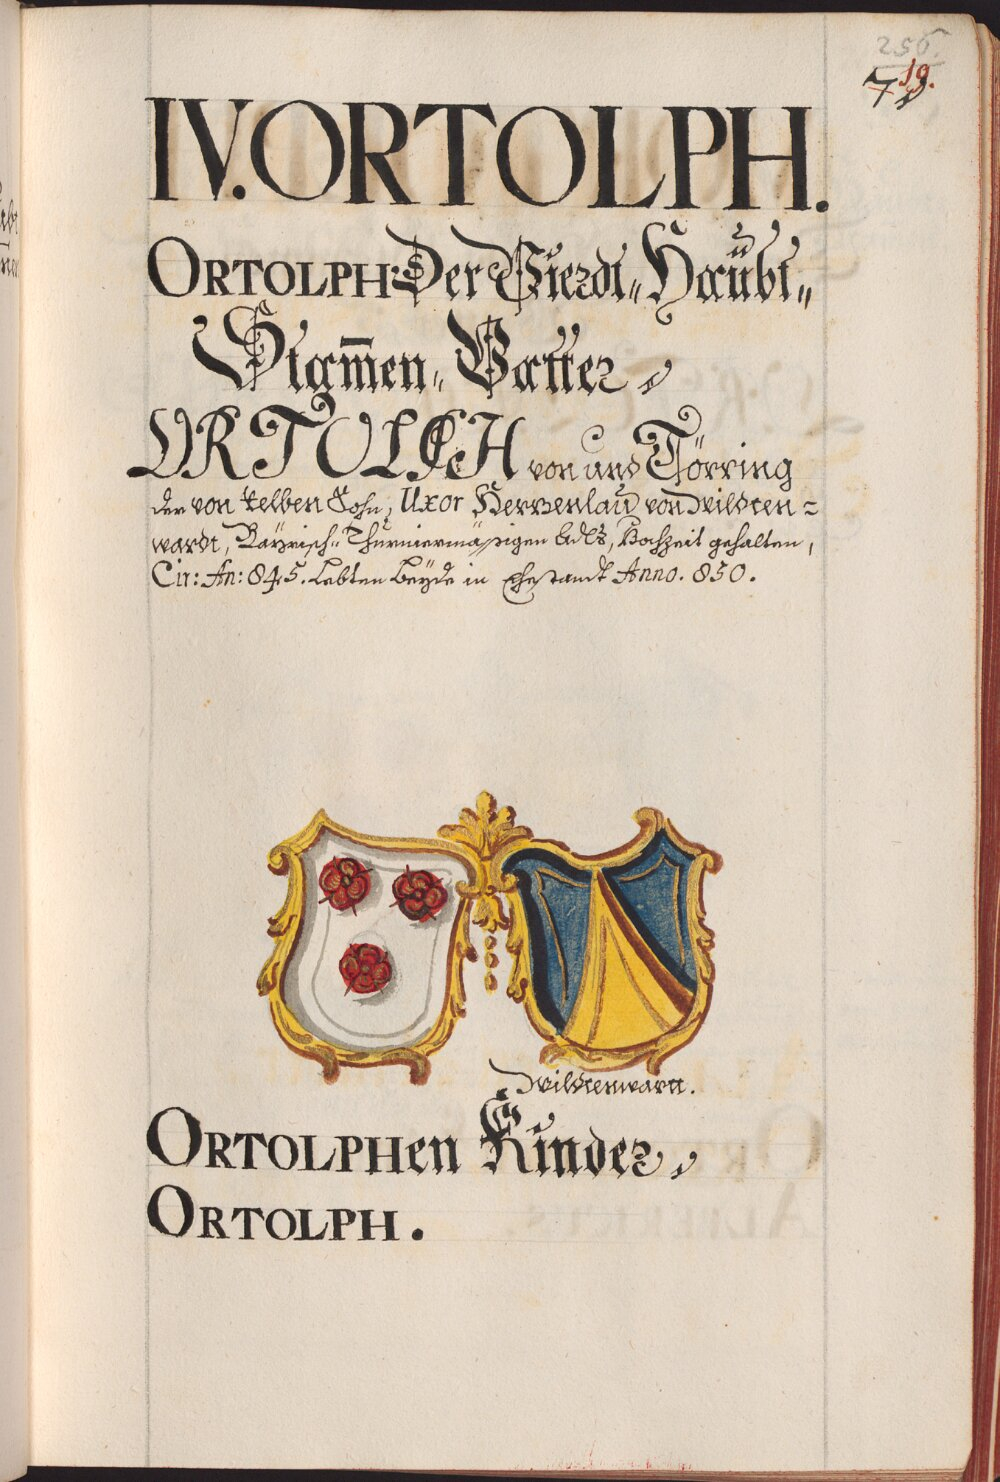 256.
19.
IV. ORTOLPH.
ORTOLPH: Der Vierdt„ Haubt„
Stam̅en„ Vatter,
ORTOLPH von und Törring
der von selben Sohn, Uxor von Wildten=
wardt, Bayrisch„ Thurniermässigen Adls, Hochzeit gehalten,
Cir: An: 845. Lebten Beÿde in Ehestandt Anno. 850.
Wildtenwartt.
ORTOLPHen Kinder,
ORTOLPH.